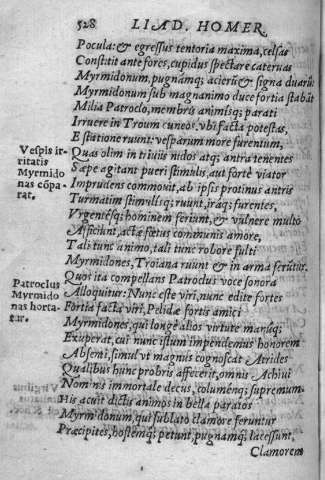 528 LIAD. HOMER.
Pocula: & egressus tentoria maxima, celsas
Constitit ante fores, cupidus spectare cateruas
Myrmidonum, pugnámq; acierũ & signa duarũ:
Myrmidonum sub magnanimo duce fortia stabãt
Milia Patroclo, membris animísq; parati
Irruere in Troum cuneos, vbi facta potestas,
E statione ruunt: vesparum more furentum,
Vespis ir-
ritatis
Myrmido
nas cõpa-
rat.
Quas olim in triuiis nidos atq; antra tenentes
Sæpe agitant pueri stimulis, aut fortè viator
Imprudens commouit, ab ipsis protinus antris
Turmatim stimulisq; ruunt, iráq; furentes,
Vrgentésq; hominem feriunt, & vulnere multo
Afficiunt, actæ fœtus communis amore,
Tali tunc animo, tali tunc robore fulti
Myrmidones, Troiana ruunt & in arma feruntur.
Patroclus
Myrmido
nas horta-
tur.
Quos ita compellans Patroclus voce sonora
Alloquitur: Nunc este viri, nunc edite fortes
Fortia facta viri, Pelidæ fortis amici
Myrmidones, qui longè alios virtute manúq;
Exuperat, cui nunc istum impendemus honorem
Absenti, simul vt magnus cognoscat Atrides
Qualibus hunc probris affecerit, omnis Achiui
Nominis immortale decus, columénq; supremum.
His acuit dictis animos in bella paratos
Myrmidonum, qui sublato clamore feruntur
Præcipites, hostémq; petunt, pugnámq; lacessunt,
Clamorem